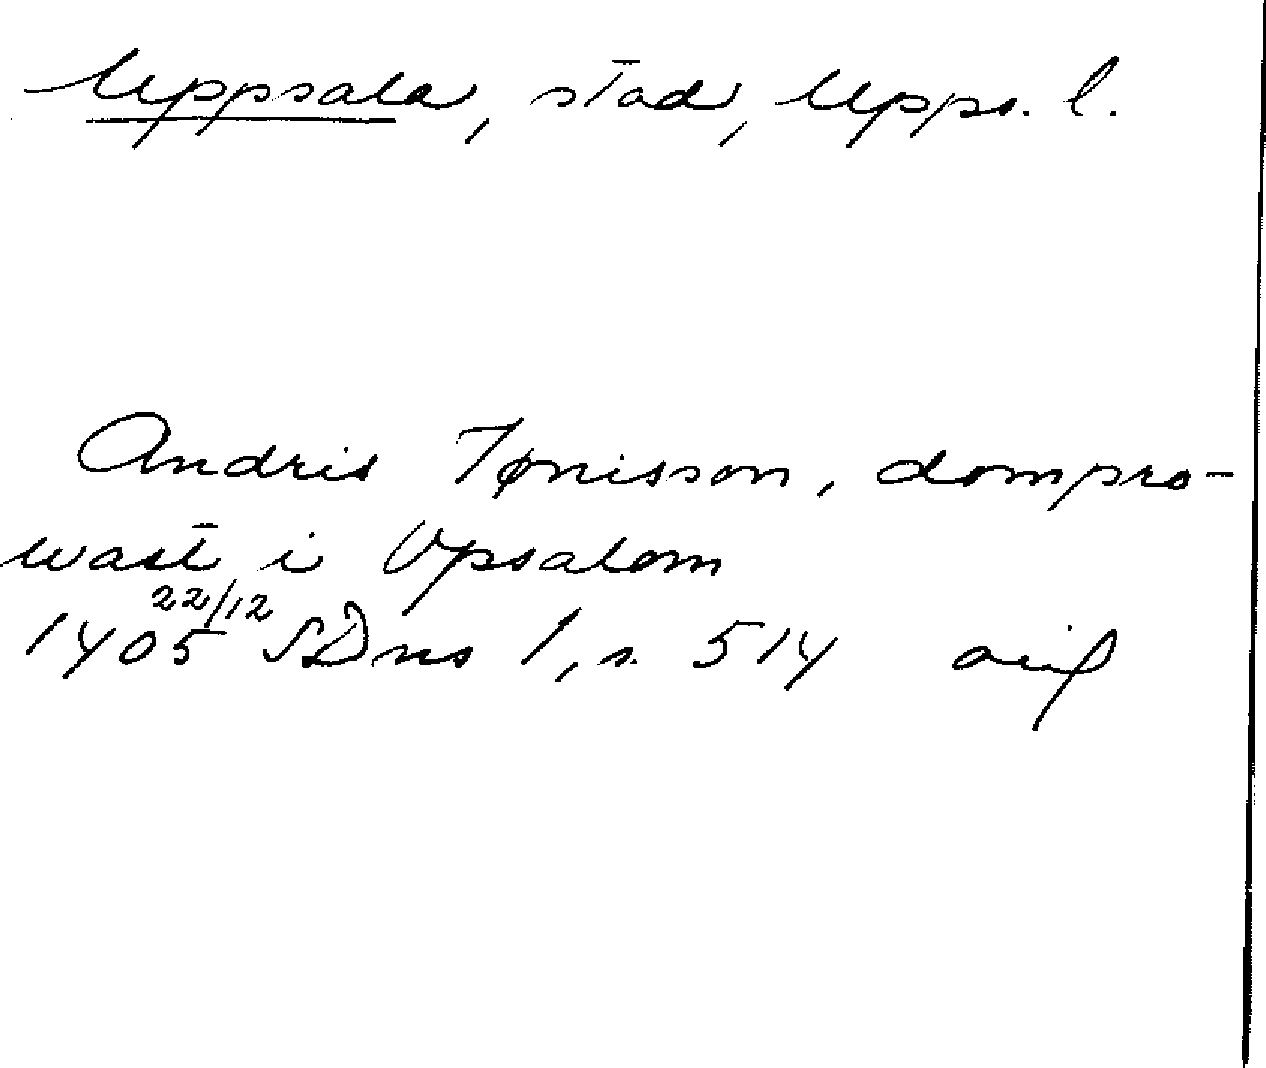 Uppsala, stad, Upps. l.
Andris Jønisson, dompro-
wast i Vpsalom
22/12
1405 SDns 1, s. 514 avif